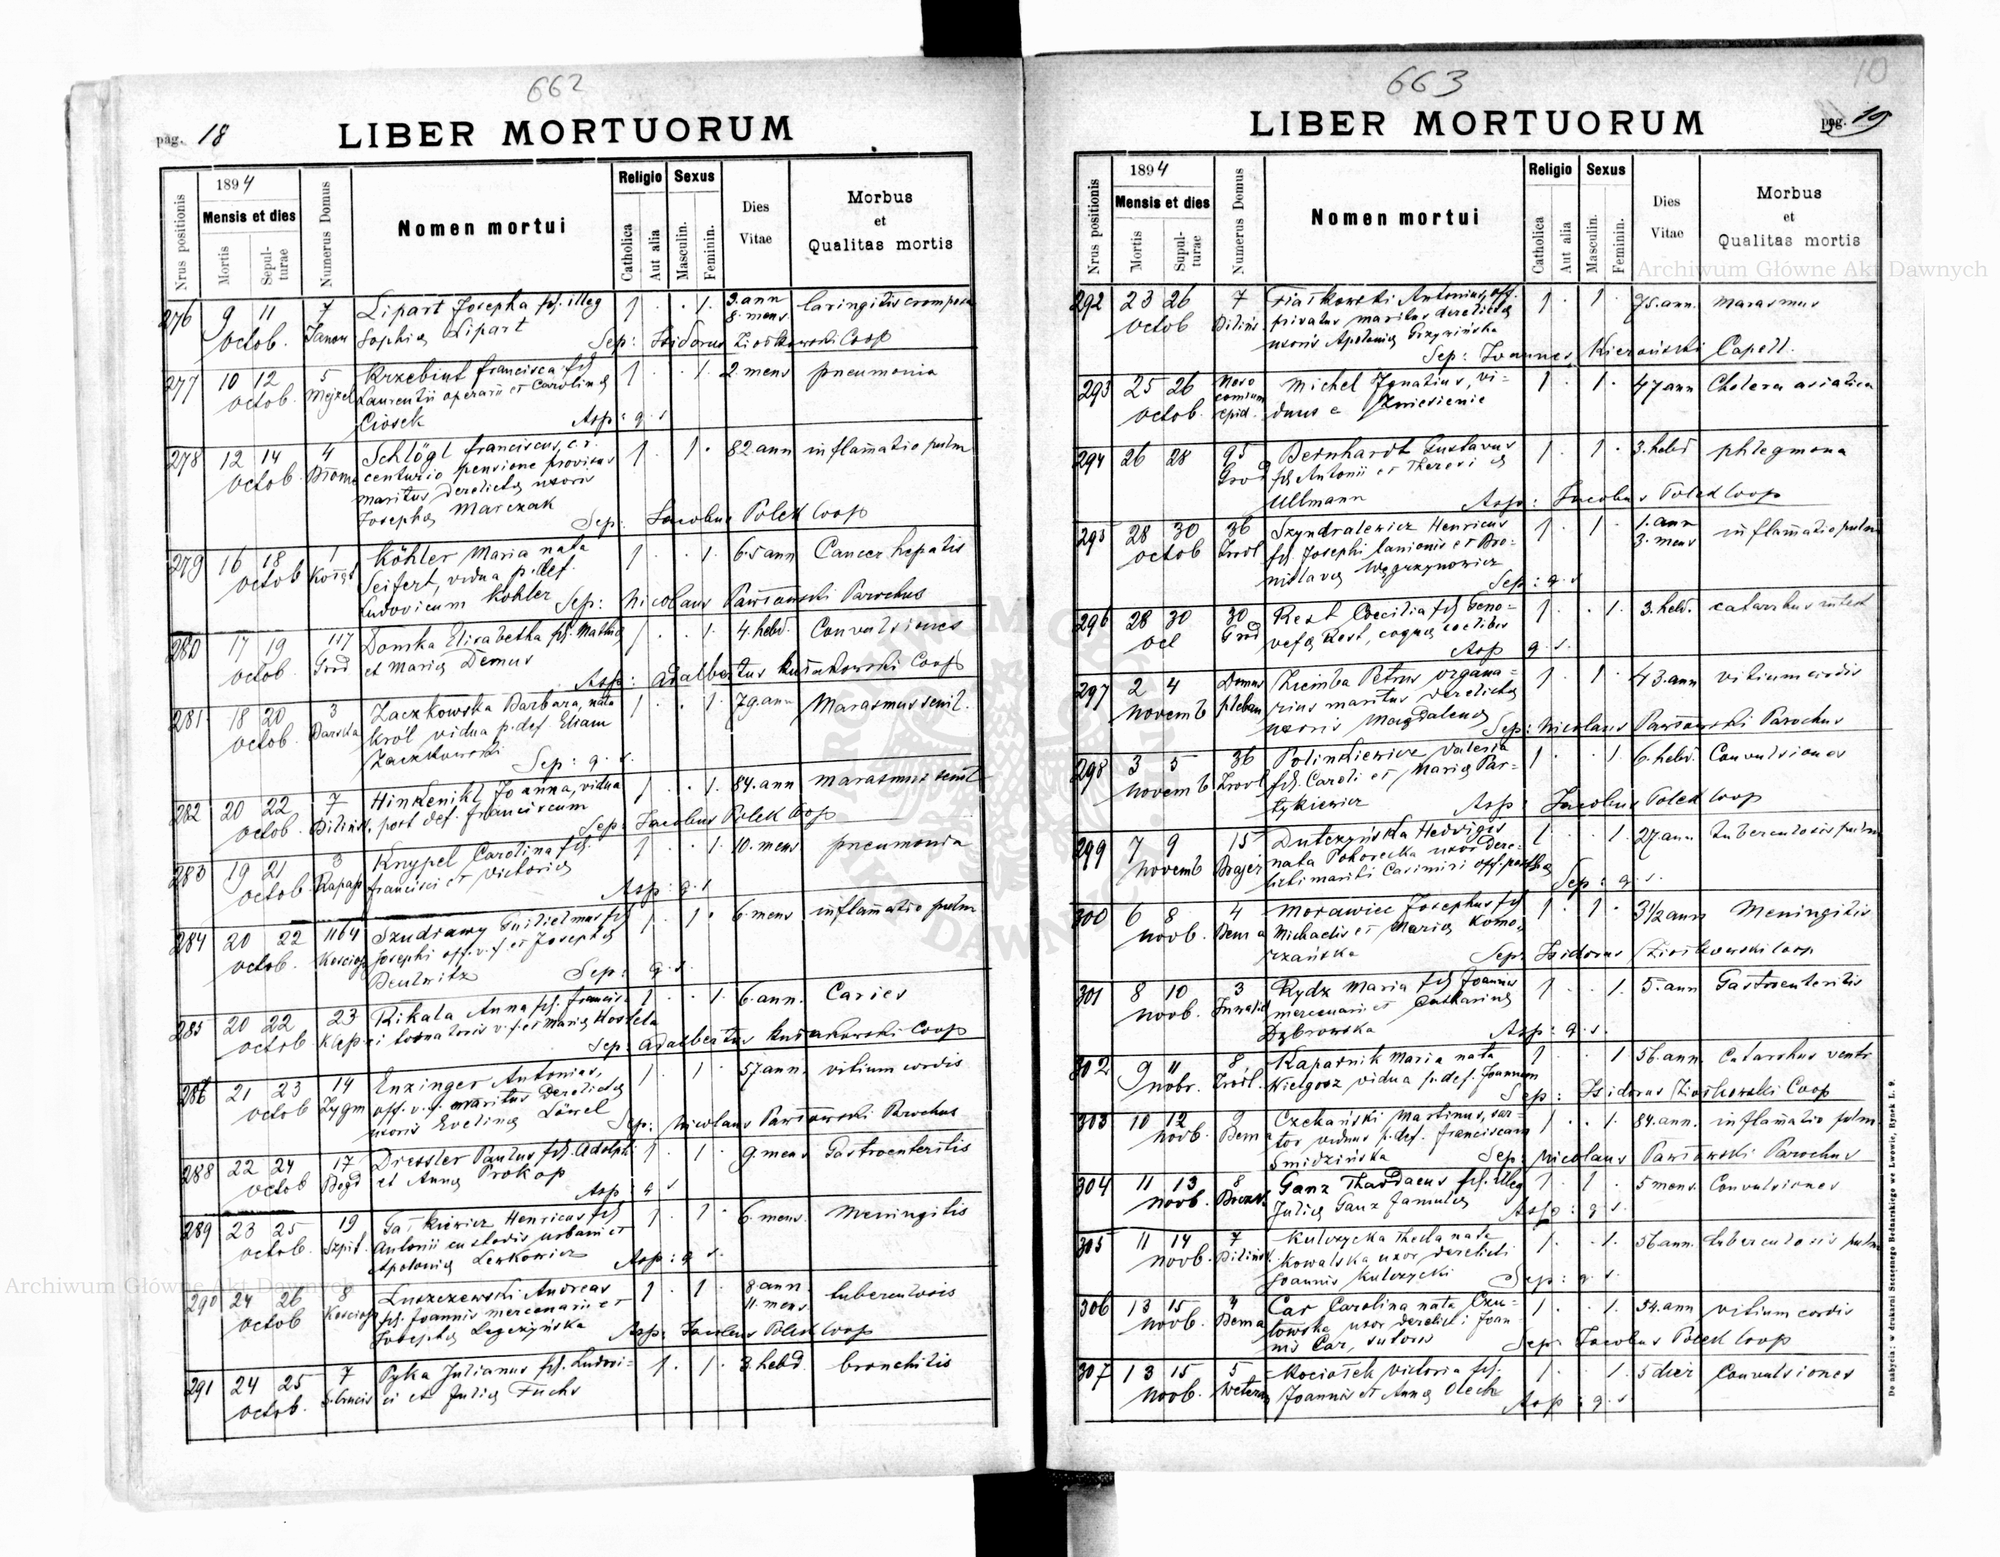 662
pag. 18
LIBER MORTUORUM
Nrus positionis
1894
Mensis et dies
Mortis
Sepulturae
Numerus Domus
Nomen mortui
Religio
Catholica
Aut alia
Sexus
Masculin.
Feminin.
Dies Vitae
Morbus et Qualitas mortis
276 9 11 octob. 7 Janow Lipart Josepha fil. illeg 1 . . 1. 3. ann 8. mens laringitis
Sophiæ Lipart Sep: Isidorus Ziołkowski Coop
277 10 12 octob. 5 Krzebiut Francisca fil 1 . . 1. 2. mens pneumonia
Laurentii operarii et Carolinæ
Ciosek Asp: q. s
278 12 14 octob. 4 Schlögl Franciscus, c. r. 1 . 1 . 82. ann inflam̄atio pulm
centurio pensione provisus
maritus derelictæ uxoris
Josephæ Marczak
Sep: Jacobus Polek Coop
279 16 18 octob 1 Köhler Maria nata 1 . . 1. 65 ann Cancer hepatis
Seifert, vidua p. def.
Ludovicum Köhler Sep: Nicolaus Pawłowski Parochus
280 17 19 octob. 117 Grod Domska Elisabetha fil. Mathiæ 1 . . 1. 4. hebd. Convulsiones
et Mariæ Demus
Asp: Adalbertus Kuśiakowski Coop
281 18 20 octob. 3 Barska Zaczkowska Barbara, nata 1 . . 1. 79. ann Marasmus senil.
Król vidua p. def. Eliam
Zaczkowski Sep: q. s.
282 20 22 octob. 7 Pilińsk. Hinkenikl Joanna, vidua 1 . . 1. 84. ann marasmus senil
post def. Franciscum
Sep: Jacobus Polek Coop
283 19 21 octob 3 Rapap Knypel Carolina fil. 1 . . 1. 10. mens pneumonia
Francisci et Victoriæ
Asp: q. s
284 20 22 octob. 1164 Szudrawy Guilielmus fil 1 . 1 . 6. mens inflam̄atio pulm
Josephi off. v. f. et Josephæ
Beutwitz Sep: q. s.
285 20 22 octob 23 Klep. Rikala Anna fil. Francis- 1 . . 1. 6. ann. Caries
ci tornatoris v. f. et Mariæ Hostela
Sep: Adalbertus Kuśiakowski Coop
286 21 23 octob 14 Zygm Enzinger Antonius, 1 . 1 . 57. ann. vitium cordis
off. v. f. maritus derelictæ
uxoris Evelinæ Löwel
Sep: Nicolaus Pawłowski Parochus
288 22 24 octob 17 Bogd Dressler Paulus fil. Adolphi 1 . 1 . 9. mens Gastroenteritis
et Annæ Prokop
Asp: q s
289 23 25 octob. 19 Szpit. Gałkiewicz Henricus fil 1 . 1 . 6. mens. Meningitis
Antonii custodis urbani et
Apoloniæ Lewkowicz Asp: q s.
290 24 26 octob 8 Łuszczewski Andreas 1 . 1 . 8. ann. 11. mens. tuberculosis
fil. Joannis mercenarii et
Josephæ Legezyńska Asp: Jacobus Polek Coop
291 24 25 octob. 7 S. Crucis Pyka Julianus fil. Ludovi- 1 . 1 . 3. hebd. bronchitis
ci et Juliæ Fuchs
663
10
pag. 19
LIBER MORTUORUM
Nrus positionis
1894
Mensis et dies
Mortis
Sepulturae
Numerus Domus
Nomen mortui
Religio
Catholica
Aut alia
Sexus
Masculin.
Feminin.
Dies Vitae
Morbus et Qualitas mortis
292 23 26 octob 7 Pilińs. Fiałkowski Antonius, off. 1 . 1 . 75. ann. marasmus
privatus maritus derelictæ
uxoris Apoloniæ Grzywińska
Sep: Joannes Kieroński Capell.
293 25 26 octob. Nosocomium epid. Michel Ignatius, vi- 1 . 1 . 47 ann Cholera asiatica
duus e Zniesienie
294 26 28 95 Grod Bernhardt Gustavus 1 . 1 . 3. hebd phlegmona
fil Antonii et Theresiæ
Ullmann Asp: Jacobus Polek Coop
295 28 30 octob 36 Zrodl Szyndralewicz Henricus 1 . 1 . 1. ann 3. mens inflam̄atio pulm
fil. Josephi lanionis et Bro-
nislavæ Węgrzynowicz
Sep: q. s
296 28 30 oct 30 Grod Rest Cœcilia fil Geno- 1 . . 1. 3. hebd. catarrhus intest
vefæ Rest, coquæ coelibis
Asp q. s.
297 2 4 novemb Domus pleban Ziemba Petrus organa- 1 . 1 . 43. ann vitium cordis
rius maritus derelictæ
uxoris Magdalenæ Sep: Nicolaus Pawłowski Parochus
298 3 5 novemb 36 Zrodl Polinkiewicz Valeria 1 . . 1. 6. hebd. Convulsiones
fil. Caroli et Mariæ Par-
tykiewicz Asp: Jacobus Polek Coop
299 7 9 novemb 15 Brajer Dutczyńska Hedvigis 1 . . 1. 27. ann tuberculosis pulm
nata Pokorecka uxor dere-
licti mariti Casimiri off. postlis
Sep: q. s.
300 6 8 novb. 4 Bema Morawiec Josephus fil 1 . 1 . 3 1/2 ann Meningitis
Michaelis et Mariæ Komo-
rzańska Sep: Isidorus Ziołkowski Coop
301 8 10 novb. 3 Inwalid Rydz Maria fil Joannis 1 . . 1. 5. ann Gastroenteritis
mercenarii et Catharinæ
Dąbrowska Asp: q. s.
302 9 11 nobr. 8 Zrodl. Kapaśnik Maria nata 1 . . 1 56. ann. Catarrhus ventr.
Wielgosz vidua p. def. Joannem
Sep: Isidorus Ziołkowski Coop
303 10 12 novb. 9 Bema Czekański Martinus, sar- 1 . . 1. 84. ann. inflam̄atio pulm.
tor viduus p. def. Franciscam
Smidzińska Sep: Nicolaus Pawłowski Parochus
304 11 13 novb. 8 Ganz Thaddaeus fil. illeg 1 . 1 . 5 mens. Convulsiones
Juliæ Ganz famulæ Asp: q s.
305 11 14 novb. 7 Pilińsk. Kulczycka Thecla nata 1 . . 1. 56. ann. tuberculosis pulm
Kowalska uxor derelicti
Joannis Kulczycki Sep: q s.
306 13 15 novb. 4 Bema Car Carolina nata Czu- 1 . . 1. 54. ann vitium cordis
towska uxor derelicti Joan-
nis Car, sutoris Sep: Jacobus Polek Coop
307 13 15 novb. 5 Weteran Kociołek Victoria fil. 1 . . 1. 5 dier Convulsiones
Joannis et Annæ Olech
Asp: q. s
Do nabycia: w drukarni Szczęsnego Bednarskiego we Lwowie, Rynek L. 9.
Archiwum Główne Akt Dawnych
Archiwum Główne Akt Dawnych